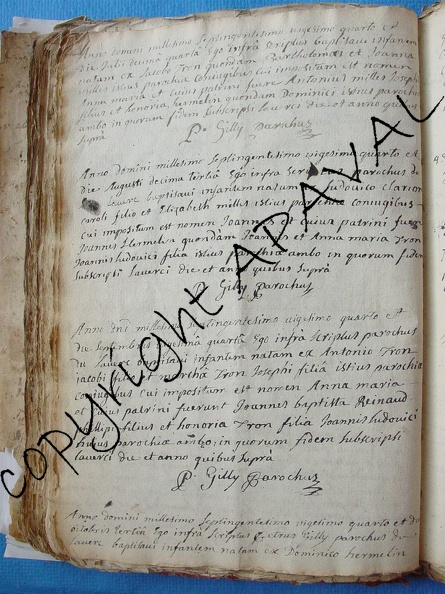 Anno domini millesimo septingentesimo vigesimo quarto et
die Julii decima quarta Ego infrà scriptus baptisavi infantem
natam ex Jacobo Tron quondam Bartholomæi et Joanna
milles istius parochiæ coniugibus cui impositum est nomen
Anna maria et cuius patrini fuere Antonius milles Joseph
filius et honoria hermelin quondam Dominici istius parochiæ
ambo in quorum fidem subscripsi Laverci die et anno quibus
suprà
Ps Gilly Parochus
Anno domini millesimo septingentesimo vigesimo quarto et
die Augusti decima tertia Ego infra scriptus parochus de
Laverc baptisavi infantem natum ex Ludovico Clarion
Caroli filio et Elizabeth milles istius parochiæ coniugibus
cui impositum est nomen Joannes et cuius patrini fuere
Joannes hermelin quondam Joannis et Anna maria Tron
Joannis Ludovici filia istius parochiæ ambo in quorum fidem
subscripsi Laverci die et anno quibus suprà
Ps Gilly Parochus
Anno millesimo septingentesimo vigesimo quarto et
die decima quarta Ego infrà scriptus parochus
de Laverc baptisavi infantem natam ex Antonio Tron
jacobi filio et martha Tron Josephi filia istius parochiæ
coniugibus cui impositum est nomen Anna maria
et cuius patrini fuerunt Joannes baptista Reinaud
philippi filius et honoria Tron filia Joannis Ludovici
huius parochiæ ambo; in quorum fidem subscripsi
Laverci die et anno quibus suprà
Ps Gilly Parochus
Anno domini millesimo septingentesimo vigesimo quarto et die
octobris tertia Ego infrà scriptus Petrus Gilly parochus de
Laverc baptisavi infantem natam ex Dominico hermelin
copyright APAVAL